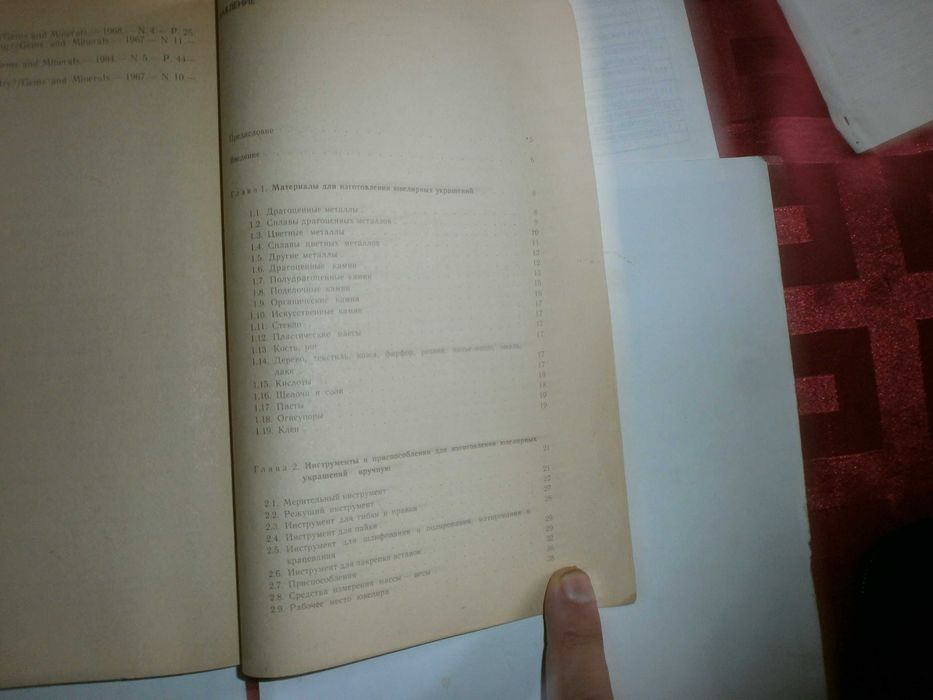 //Gems and Minerals.— 1968.— N 4.— P. 25.
//Gems and Minerals.— 1967.— N 11.—
Gems and Minerals.— 1964.— N 5.— P. 44—
try//Gems and Minerals.— 1967.— N 10.—
АВЛЕНИЕ
Предисловие 5
Введение 6
Глава 1. Материалы для изготовления ювелирных украшений 8
1.1. Драгоценные металлы 8
1.2. Сплавы драгоценных металлов 9
1.3. Цветные металлы 10
1.4. Сплавы цветных металлов 11
1.5. Другие металлы 12
1.6. Драгоценные камни 12
1.7. Полудрагоценные камни 13
1.8. Поделочные камни 15
1.9. Органические камни 16
1.10. Искусственные камни 17
1.11. Стекло 17
1.12. Пластические массы 17
1.13. Кость, рог
1.14. Дерево, текстиль, кожа, фарфор, резина, папье-маше, эмаль,
лаки 17
1.15. Кислоты 17
1.16. Щелочи и соли 18
1.17. Пасты 18
1.18. Огнеупоры 19
1.19. Клеи 19
Глава 2. Инструменты и приспособления для изготовления ювелирных
украшений вручную 21
2.1. Мерительный инструмент 21
2.2. Режущий инструмент 27
2.3. Инструмент для гибки и правки 27
2.4. Инструмент для пайки 28
2.5. Инструмент для шлифования и полирования, матирования и
крацевания 29
2.6. Инструмент для закрепки вставок 29
2.7. Приспособления 32
2.8. Средства измерения массы — весы 36
2.9. Рабочее место ювелира 38